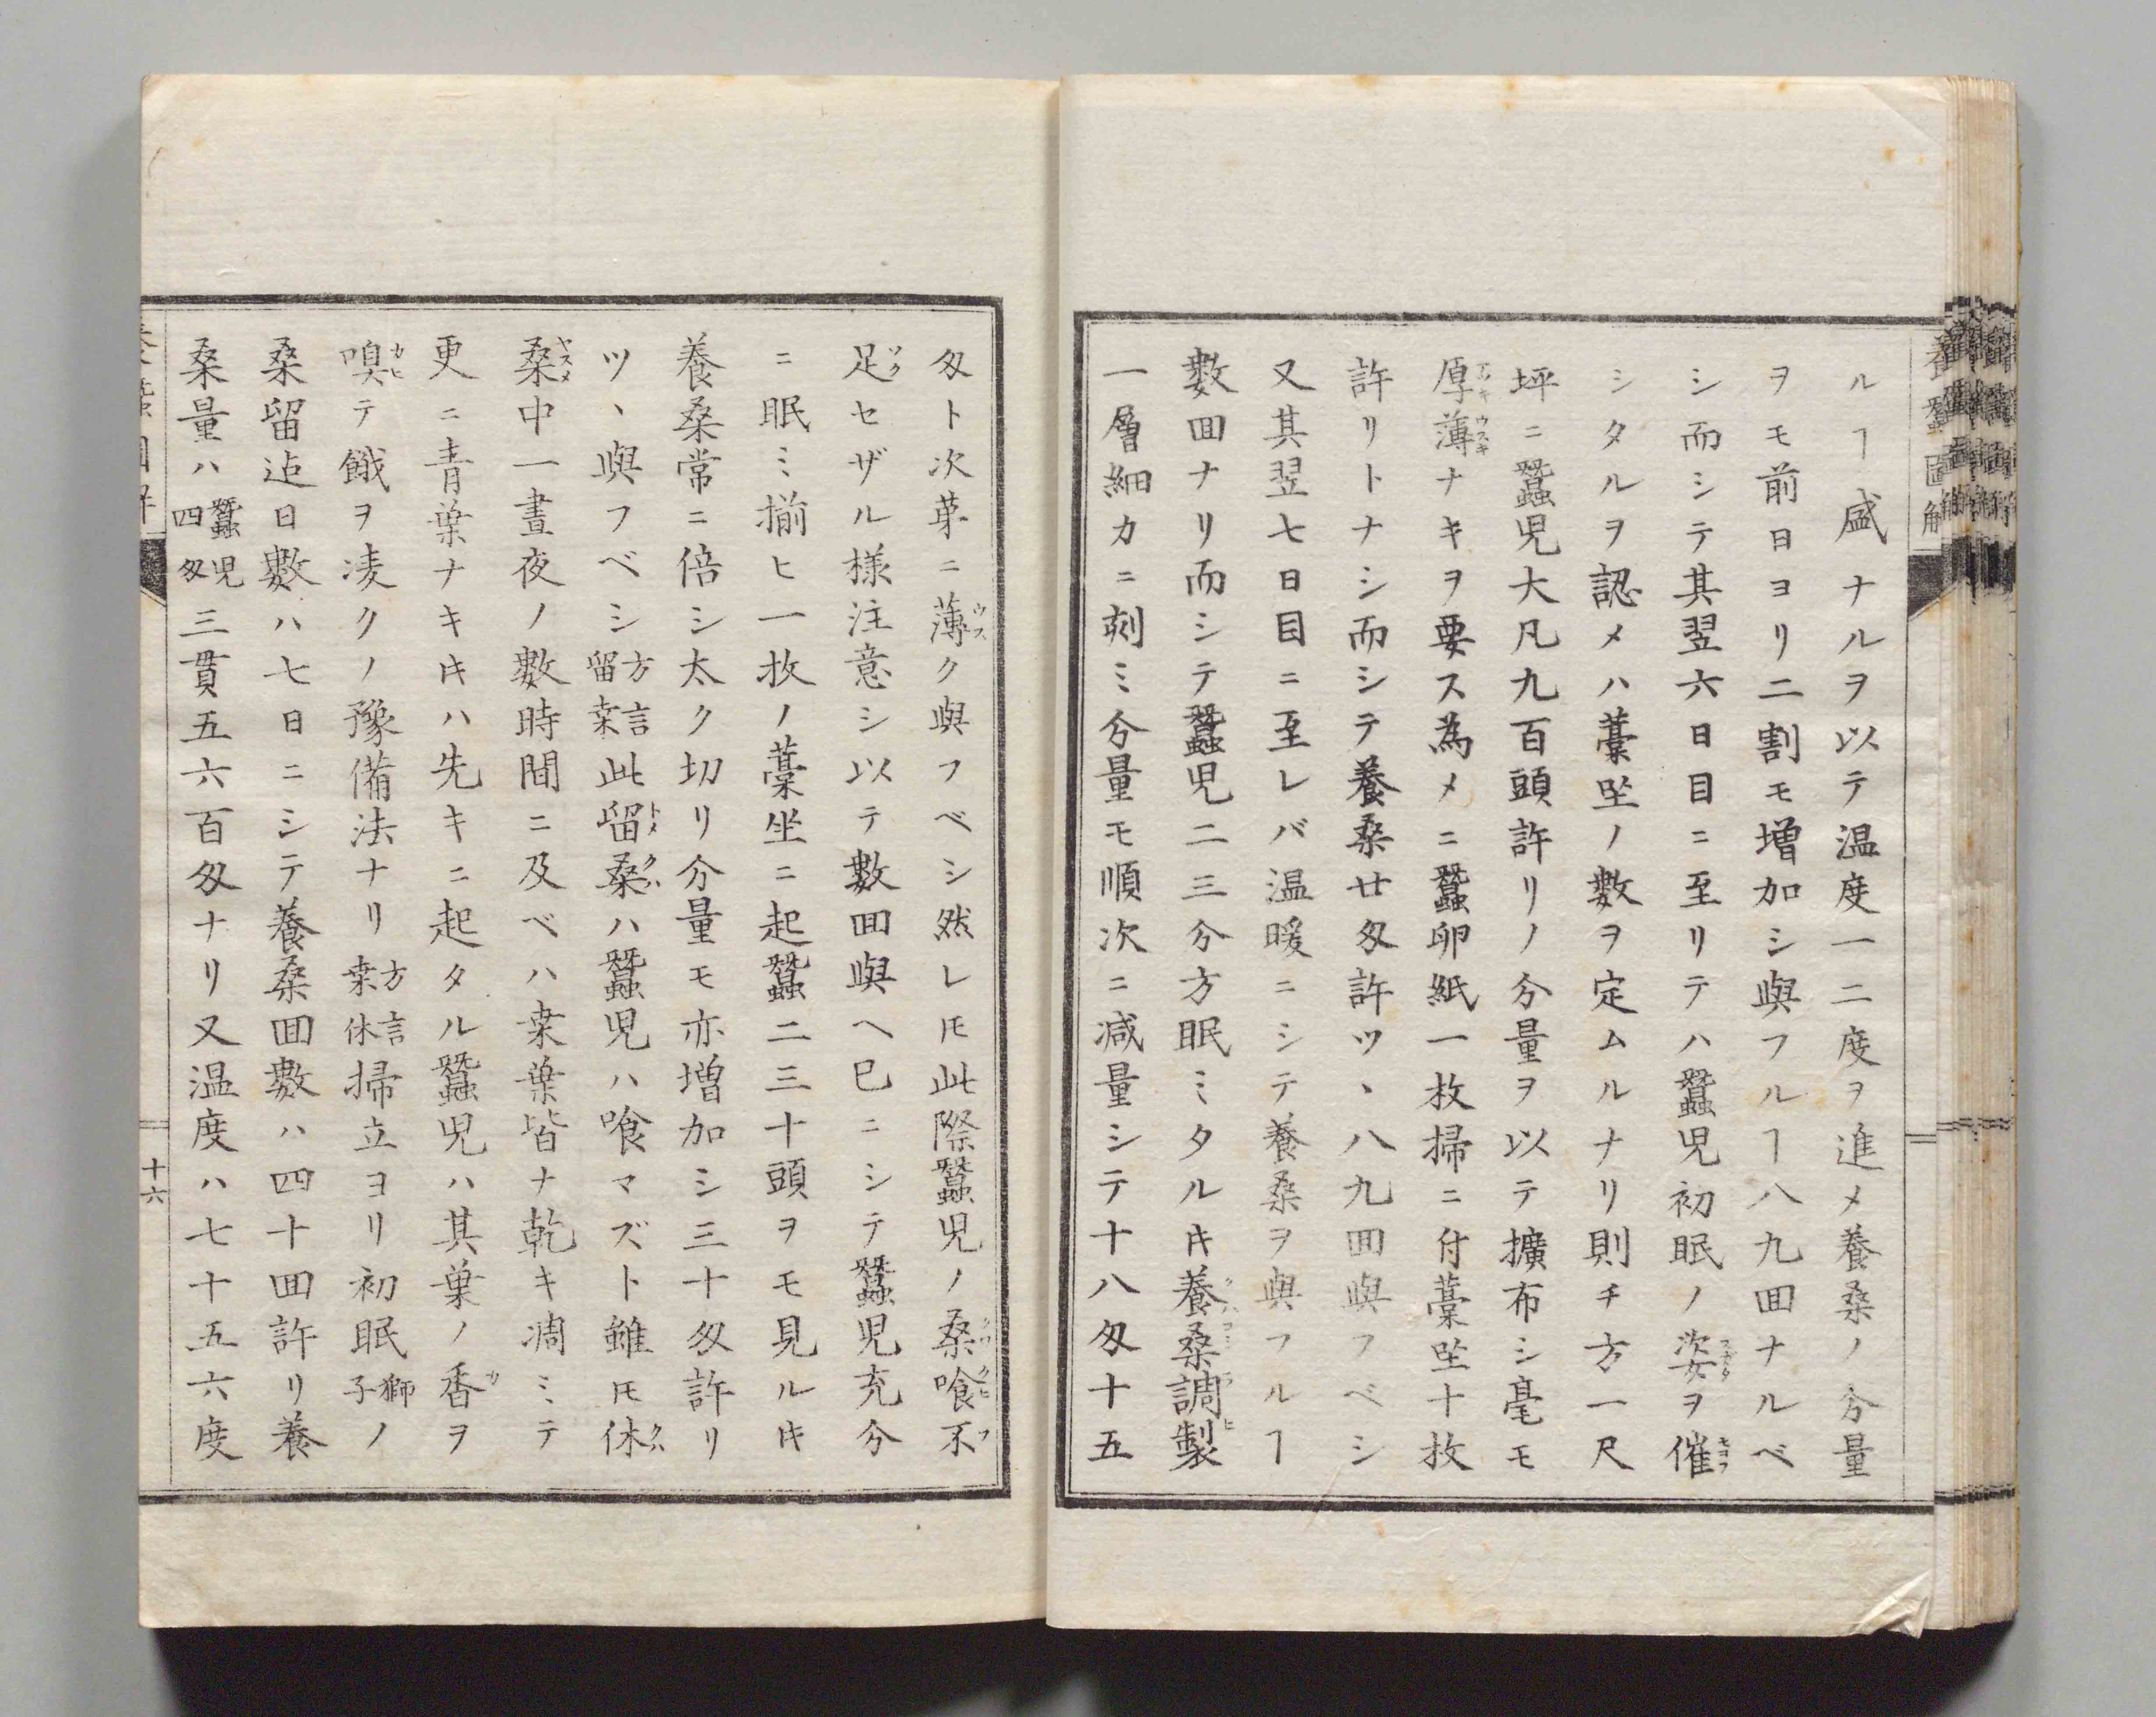 養蠶圖解
ルヿ盛ナルヲ以テ温度一二度ヲ進メ養桑ノ分量
ヲモ前日ヨリ二割モ増加シ與フルヿ八九回ナルベ
シ而シテ其翌六日目ニ至リテハ蠶児初眠ノ姿ヲ催
シタルヲ認メハ藁坐ノ數ヲ定ムルナリ則チ方一尺
坪ニ蠶児大凡九百頭許リノ分量ヲ以テ擴布シ毫モ
厚薄ナキヲ要ス為メニ蠶卵紙一枚掃ニ付藁坐十枚
許リトナシ而シテ養桑廿匁許ツヽ八九回與フベシ
又其翌七日目ニ至レバ温暖ニシテ養桑ヲ與フルヿ
數回ナリ而シテ蠶児二三分方眠ミタルキ養桑調製
一層細カニ刻ミ分量モ順次ニ減量シテ十八匁十五
匁ト次苐ニ薄ク與フベシ然レ𪜈此際蠶児ノ桑喰不
足セザル様注意シ以テ數回與ヘ巳ニシテ蠶児充分
ニ眠ミ揃ヒ一枚ノ藁坐ニ起蠶二三十頭ヲモ見ルキ
養桑常ニ倍シ太ク切リ分量モ亦増加シ三十匁許リ
ツヽ與フベシ方言留桒此留桑ハ蠶児ハ喰マズト雖𪜈休
桑中一晝夜ノ數時間ニ及ベハ桒葉皆ナ乾キ凋ミテ
更ニ青葉ナキキハ先キニ起タル蠶児ハ其葉ノ香ヲ
嗅テ餓ヲ凌クノ豫備法ナリ方言桒休掃立ヨリ初眠獅子ノ
桑留迠日數ハ七日ニシテ養桑回數ハ四十回許リ養
桑量ハ蠶児四匁三貫五六百匁ナリ又温度ハ七十五六度
十六